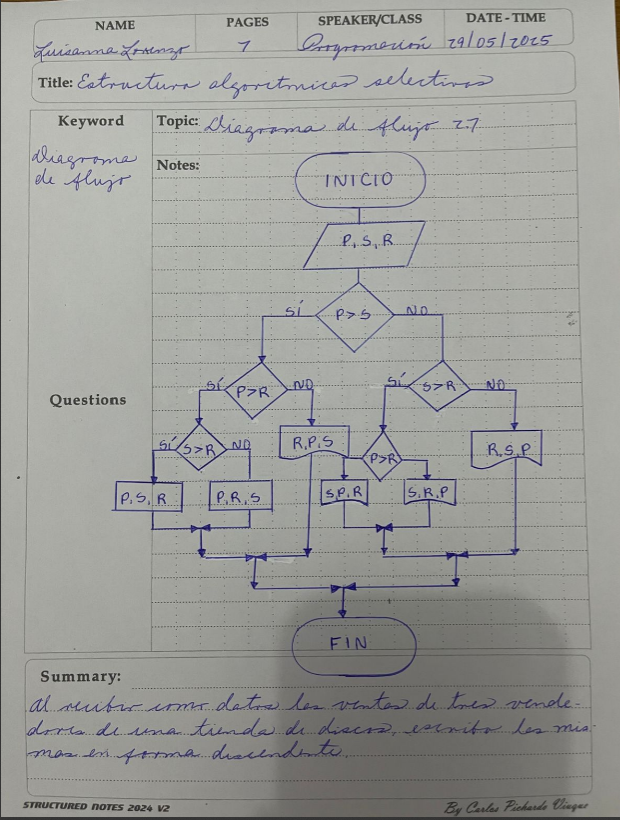 NAME PAGES SPEAKER/CLASS DATE - TIME
Luisanna Lorenzo 7 Programación 29/05/2025
Title: Estructura algorítmicas selectivas
Keyword Topic: Diagrama de flujo 2.7
Diagrama
de flujo
Notes:
INICIO
P, S, R
SÍ P>S NO
SÍ P>R NO SÍ S>R NO
SÍ S>R NO R,P,S P>R R,S,P
Questions
P,S,R P,R,S S,P,R S,R,P
FIN
Summary:
Al recibir como datos las ventas de tres vende-
dores de una tienda de discos, escriba las mis-
mas en forma descendente.
STRUCTURED NOTES 2024 V2 By Carlos Pichardo Viuque